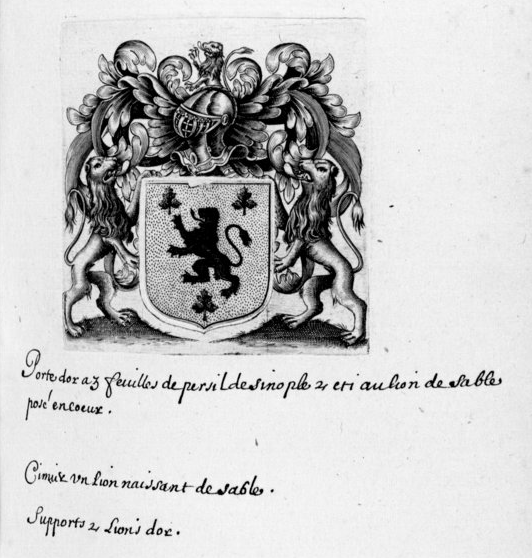 Porte dor a 3 feuilles de persil de sinople 2 et 1 au lion de sable
posé en coeur.
Cimier vn lion naissant de sable.
Supports 2 Lions dor.